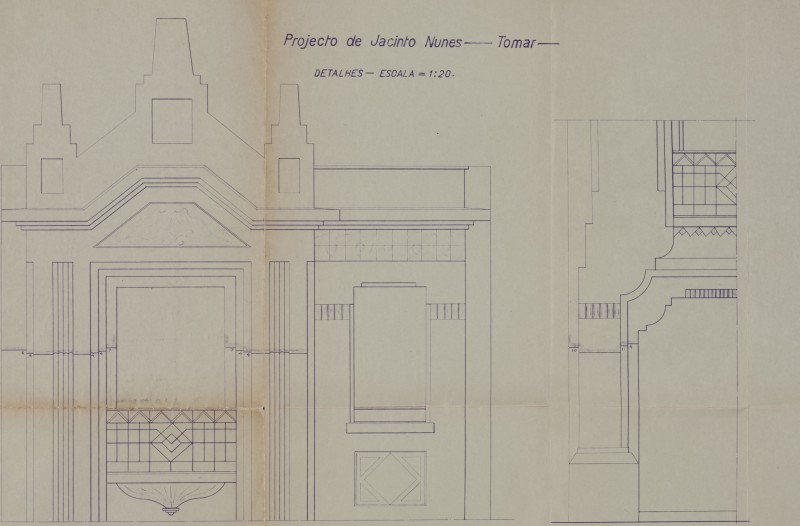 Projecto de Jacinto Nunes — Tomar —
DETALHES — ESCALA = 1:20.